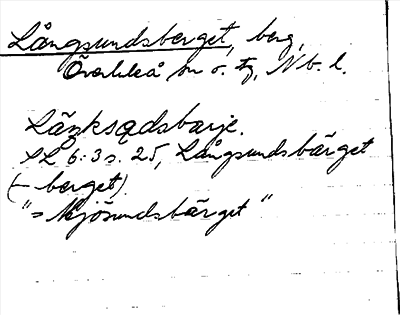 Långsundsberget, berg,
Överkleå sn o. tg, Nb. l.
Lånksadsbarje.
SL 6:3 s. 25, Långsundsbärget
(- berget)
"= Mjösundsbärget"